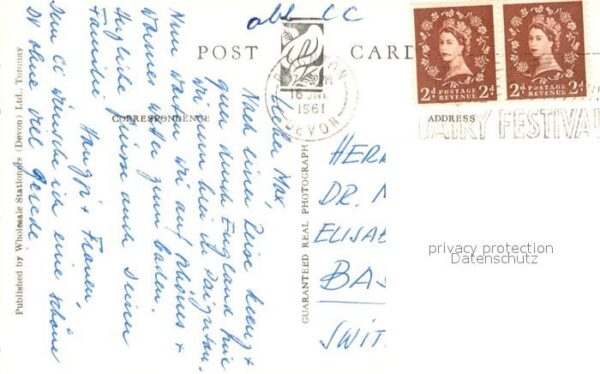 abb CC
POST CARD
CORRESPONDENCE
ADDRESS
PAIGNTON
1961
DEVON
2d POSTAGE REVENUE 2d
2d POSTAGE REVENUE 2d
DAIRY FESTIVAL
Lieber Max,
Nach einer Reise kreuz +
quer durch England sind
wir nun hier in Paignton.
Nun warten wir auf schönes +
warmes Wetter zum baden.
Herzliche Grüsse auch Deiner
Familie
Hanspi + Frauen,
Dem CC wünsche ich eine schöne
ohne viel Gerede.
HERR
DR.
ELISAB
BAS
SWIT
privacy protection
Datenschutz
GUARANTEED REAL PHOTOGRAPH
Published by Wholesale Stationers (Devon) Ltd., Torquay